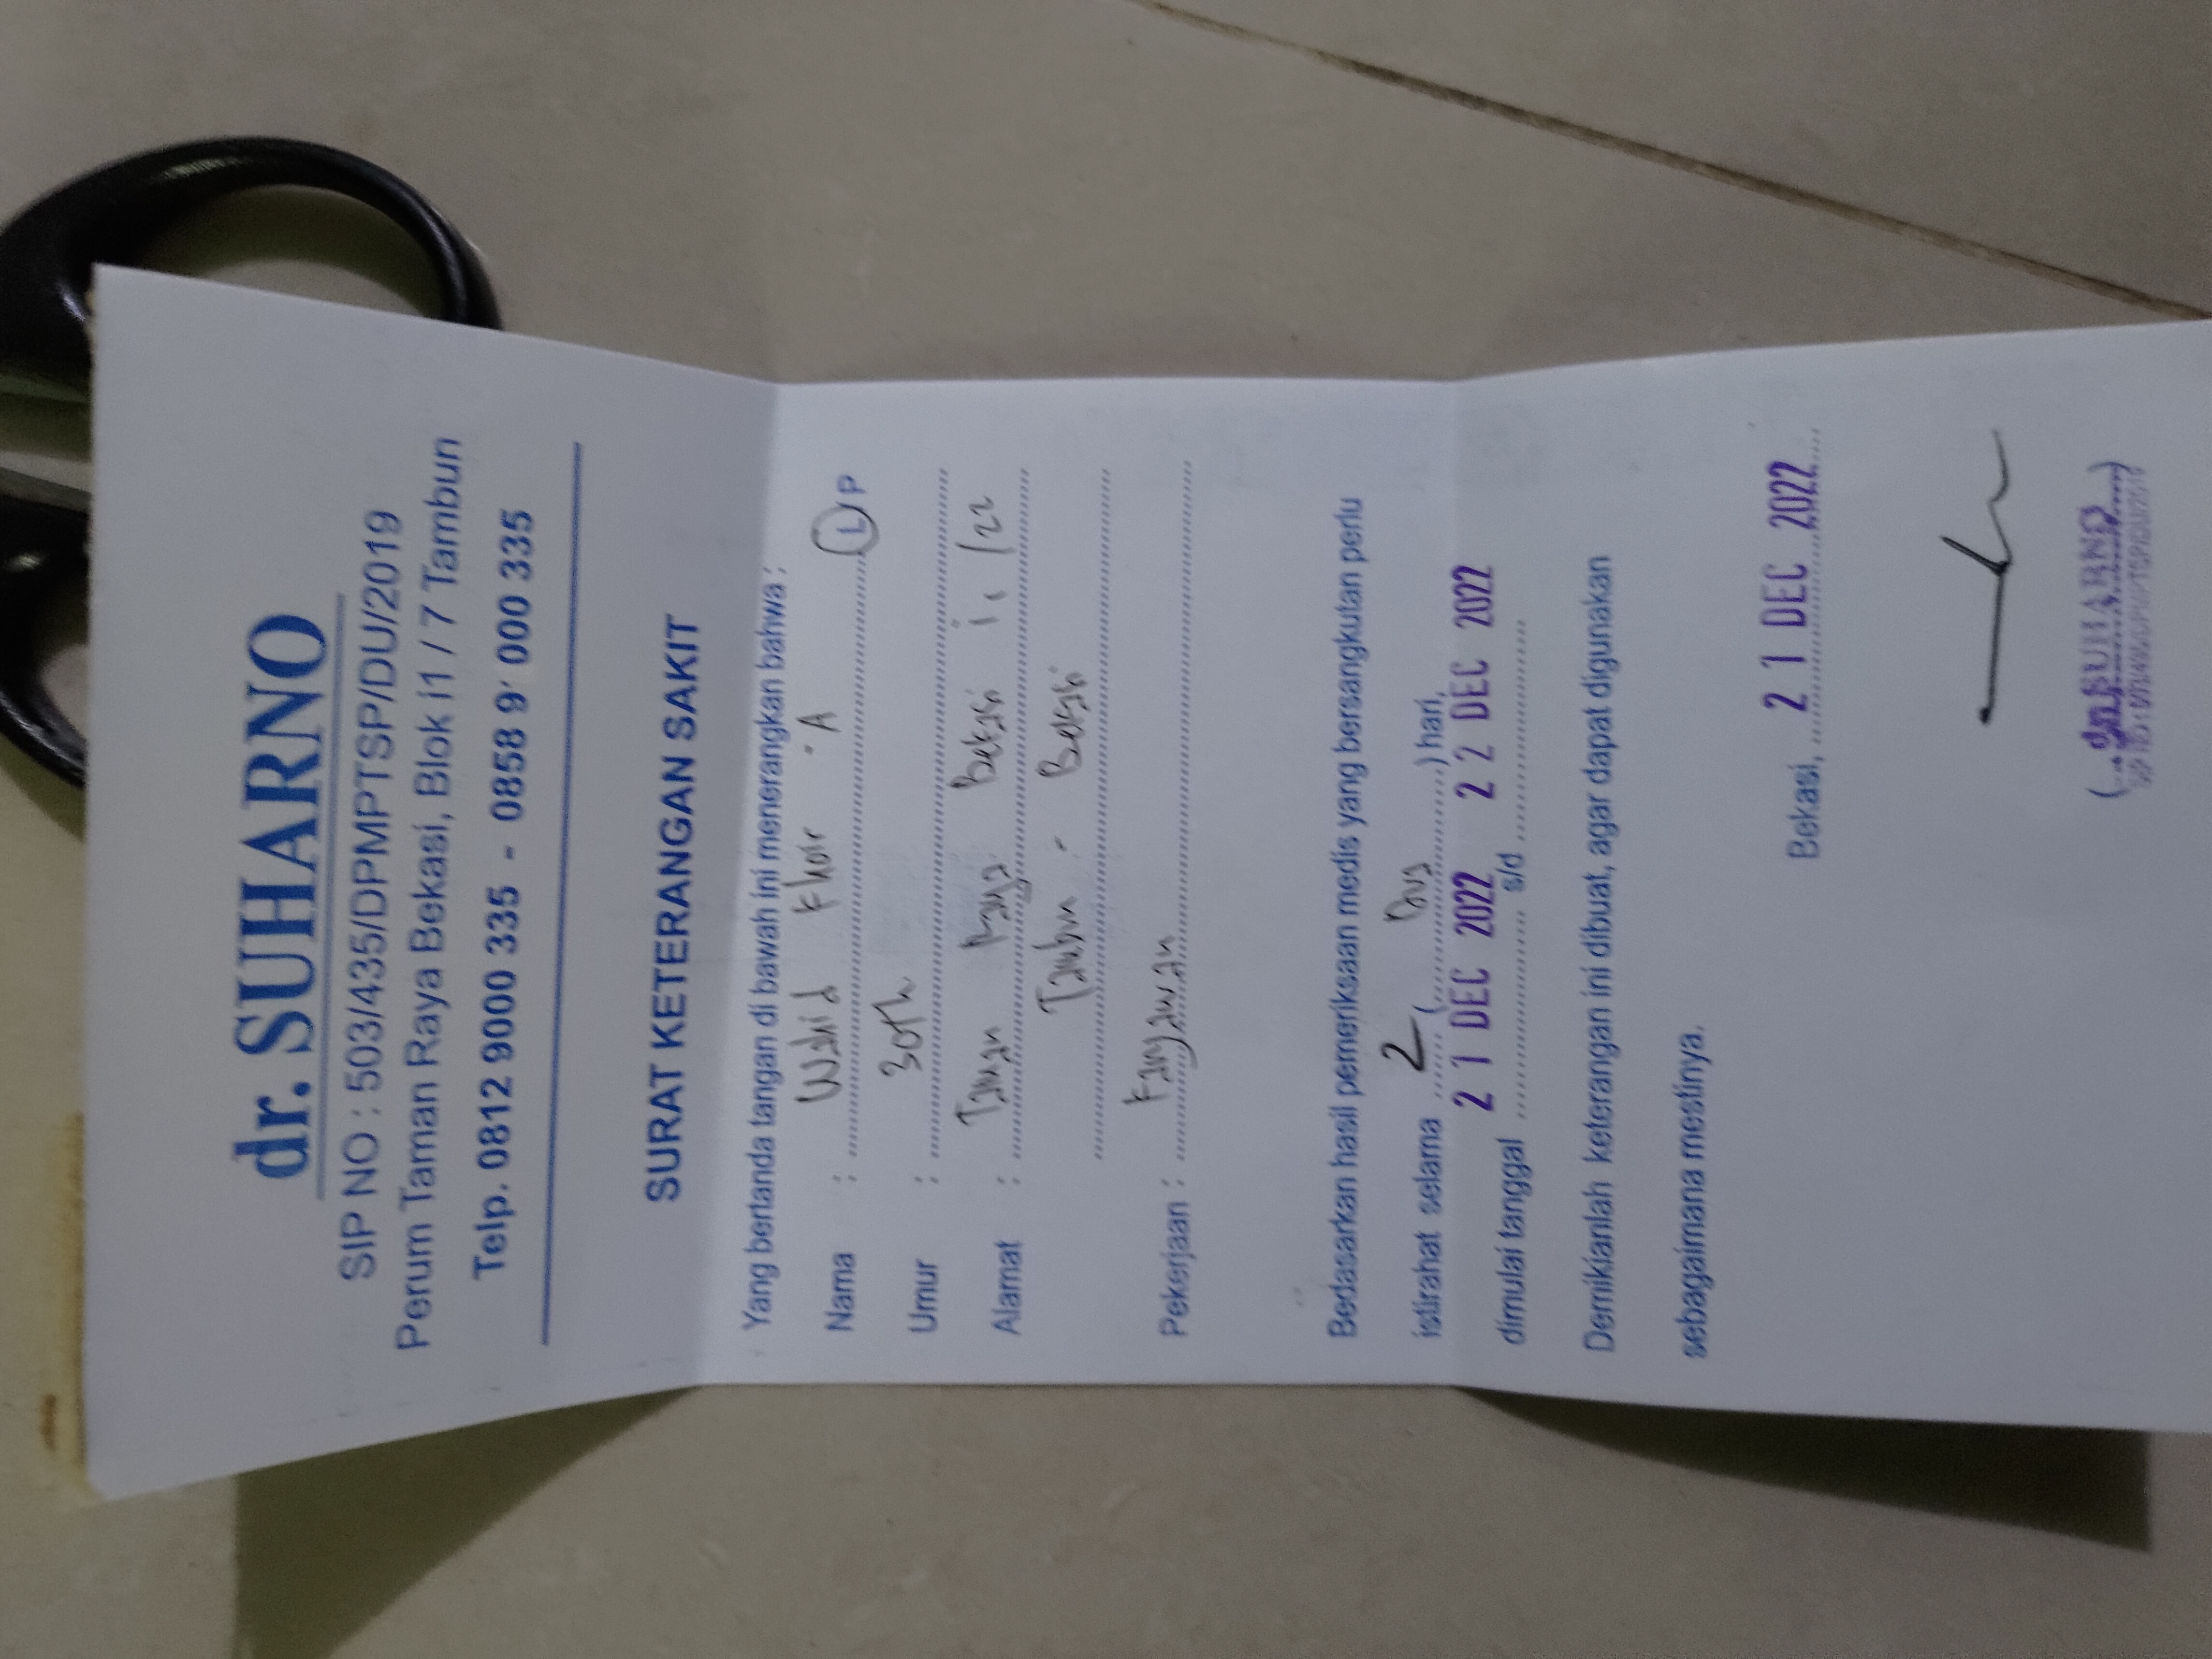 dr. SUHARNO
SIP NO : 503/435/DPMPTSP/DU/2019
Perum Taman Raya Bekasi, Blok i1 / 7 Tambun
Telp. 0812 9000 335 - 0858 9' 000 335
SURAT KETERANGAN SAKIT
Yang bertanda tangan di bawah ini menerangkan bahwa :
Nama : Wahid Khoir A L/P
Umur : 30th
Alamat : Taman Raya Bekasi i1 /22
Tambun - Bekasi
Pekerjaan : Karyawan
Bedasarkan hasil pemeriksaan medis yang bersangkutan perlu
istirahat selama 2 (Dua) hari,
dimulai tanggal 21 DEC 2022 s/d 22 DEC 2022
Demikianlah keterangan ini dibuat, agar dapat digunakan
sebagaimana mestinya.
Bekasi, 21 DEC 2022
(dr. SUHARNO)
SIP NO : 503/435/DPMPTSP/DU/2019